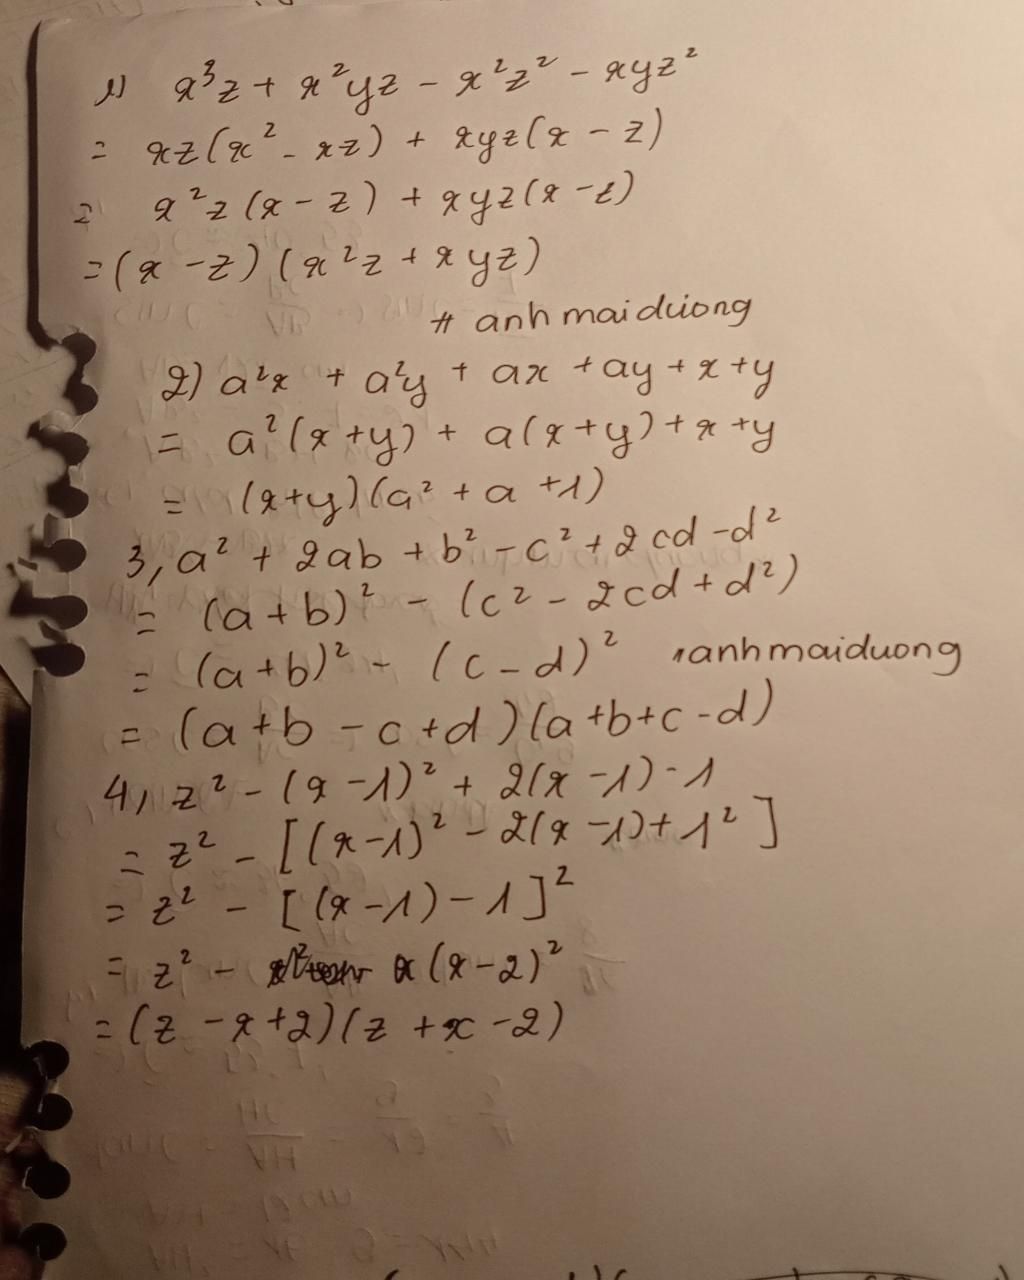 1) x³z + x²yz - x²z² - xyz²
= xz(x² - xz) + xyz(x - z)
= x²z(x - z) + xyz(x - z)
= (x - z)(x²z + xyz)
# anhmaiduong
2) a²x + a²y + ax + ay + x + y
= a²(x + y) + a(x + y) + x + y
= (x + y)(a² + a + 1)
3, a² + 2ab + b² - c² + 2cd - d²
= (a + b)² - (c² - 2cd + d²)
= (a + b)² - (c - d)² anhmaiduong
= (a + b - c + d)(a + b + c - d)
4, z² - (x - 1)² + 2(x - 1) - 1
= z² - [(x - 1)² - 2(x - 1) + 1²]
= z² - [(x - 1) - 1]²
= z² - (x - 2)²
= (z - x + 2)(z + x - 2)